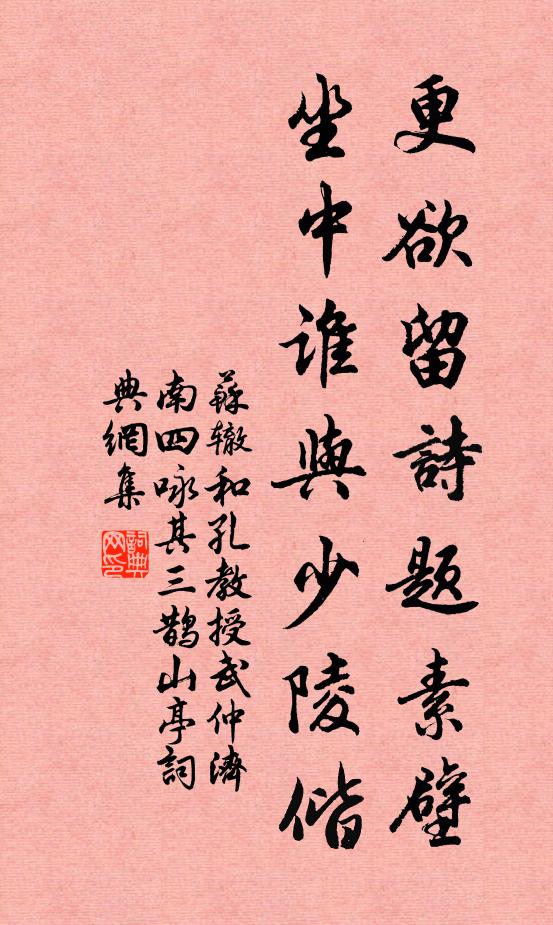 更欲留詩題素壁
坐中誰與少陵偕
蘇辙和孔教授武仲濟
南四咏其三鵲山亭詞
典網集
詞典
网印